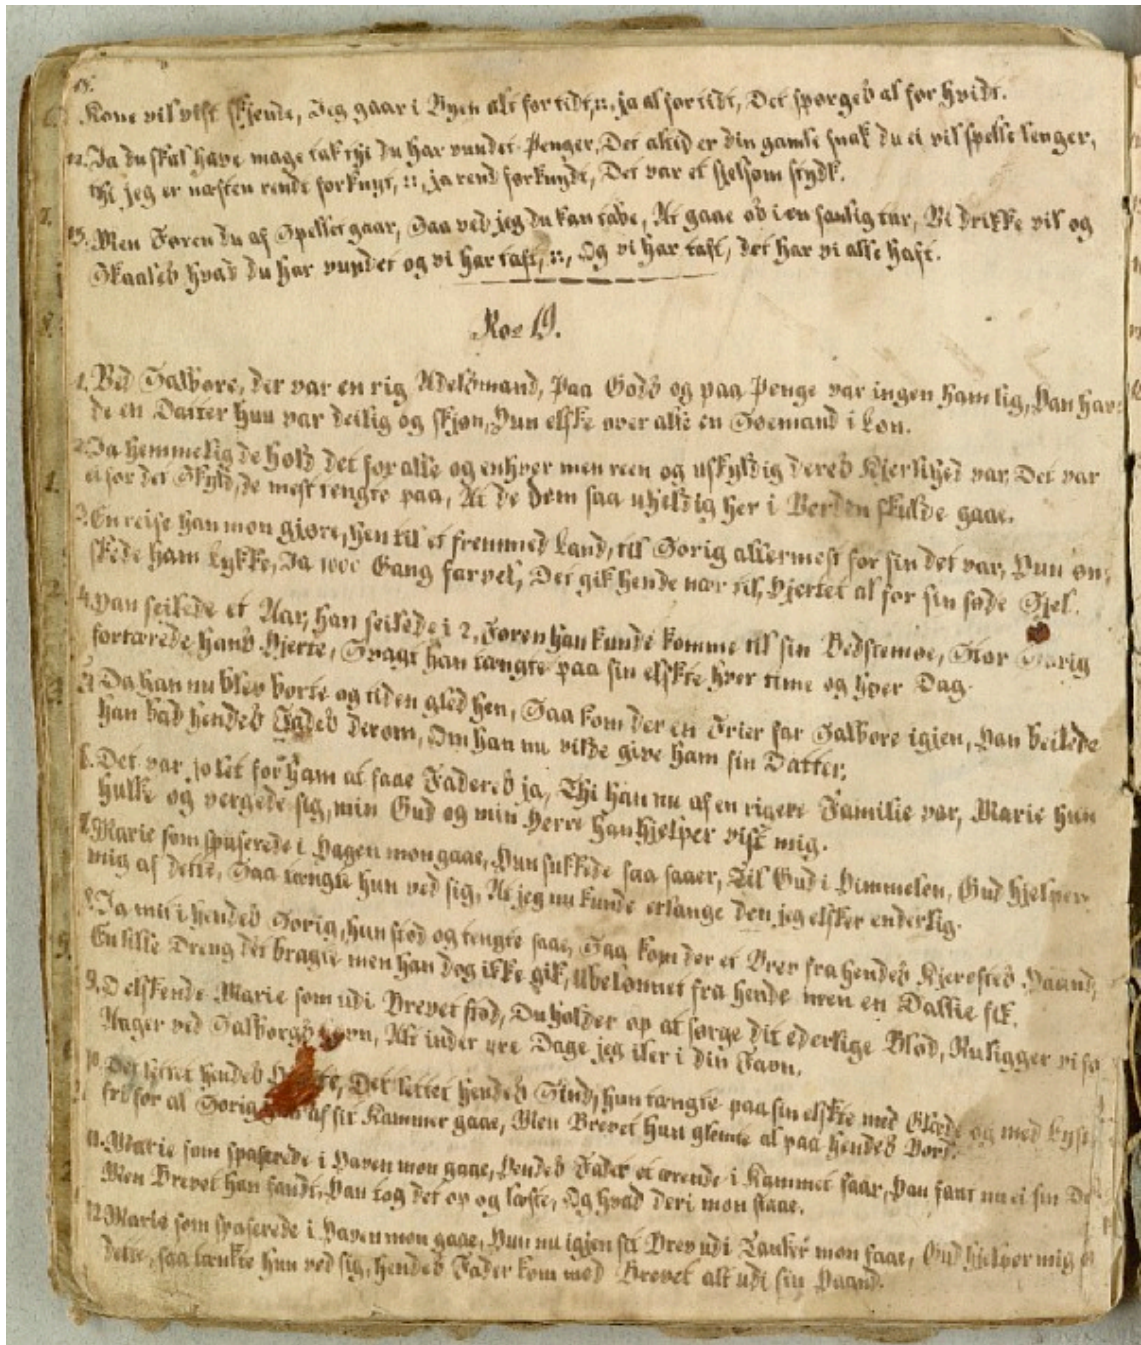 18.
Kone vil vist skjende, Jeg gaar i Byen alt for tidt, :,: ja al for tidt, Det spørges al for hvidt.
12. Ja du skal have mage tak thi du har vundet Penger, Det altid er din gamle snak du ei vil spelle lenger,
thi jeg er næsten rendt forknyt, :,: ja rend forknydt, Det var et sjelsom stydk.
13. Men Føren du af Spellet gaar, Saa ved jeg du kan tabe, At gaae os i en saalig tur, Vi drikke vil og
Skaales hvad du har vundet og vi har taft, :,: Og vi har taft, det har vi alle haft.
No 19.
1. Ved Salbore, der var en rig Adelsmand, Paa Gods og paa Penge var ingen ham lig, Han har-
de en Datter hun var deilig og skjøn, Hun elske over alle en Søemand i Løn.
2. Ja hemmelig de holdt det for alle og enhver men reen og uskyldig deres Kjerlihed var, Det var
ei for det Skyld, de mest tengte paa, At de dem saa uheldig her i Verden skulde gaae.
3. En reise han mon gjøre, hen til et fremmed Land, til Sorig allermest for sin det var, Hun øn-
skede ham Lykke, Ja 1000 Gang farvel, Det gik hende nær til Hjertet al for sin søde Sjel.
4. Han seilede et Aar, han seilede i 2, Føren han kunde komme til sin Bedstemøe, Stor Sorig
fortærede hans Hjerte, Svagt han tængte paa sin elskte hver time og hver Dag.
5. Da han nu blev borte og tiden gled hen, Saa kom der en Frier far Salbore igjen, Han beilede
han bad hendes Fades derom, Om han nu vilde give ham sin Datter.
6. Det var jo let for ham at faae Faderes ja, Thi han nu af en rigere Familie var, Marie hun
hulke og vergede sig, min Gud og min Herre han hjelper vist mig.
7. Marie som spaserede i Hagen mon gaae, Hun sukkede saa saaer, Til Gud i Himmelen, Gud hjelper
mig af dette, Saa tængte hun ved sig, At jeg nu kunde erlange den jeg elsker enderlig.
8. Ja mit i hendes Sorig, hun stod og tengte saae, Saa kom der et Brev fra hendes Kjerestes Haand,
En lille Dreng det bragte men han dog ikke gik, Ubelønnet fra hende men en Dallie fik.
9. O elskende Marie som udi Brevet stod, Du holder op at sørge dit ederlige Blod, Nu ligger vi for
Anger ved Salborgs Havn, At inder tre Dage jeg iler i din Favn.
10. Det lettet hendes, Det lettet hendes Sind, hun tængte paa sin elskte med Glæde og med Lyst
fri for al Sorig af sit Kammer gaae, Men Brevet hun glemte al paa hendes Bord.
11. Marie som spaserede i Haven mon gaae, Hendes Fader et ærende i Kammet faar, Han fant nu ei sin
Men Brevet han fandt, Han tog det op og læste, Og hvad deri mon staae.
12. Marie som spaserede i Haven mon gaae, Hun nu igjen sit Brev udi Tanker mon faae, Gud hjelper mig
dette, saa tænkte hun ved sig, hendes Fader kom med Brevet alt udi sin Haand.